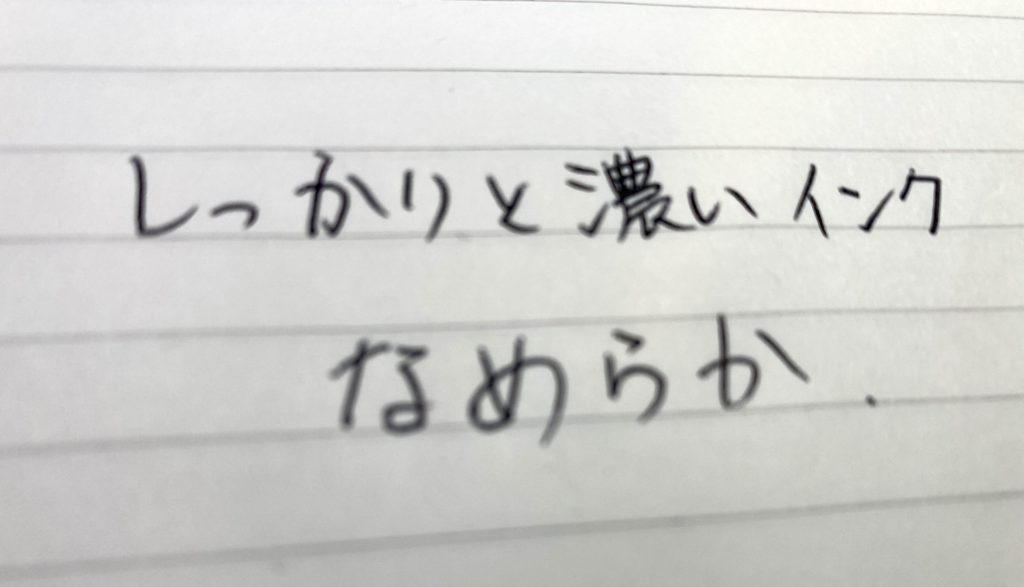 しっかりと濃いインク
なめらか.